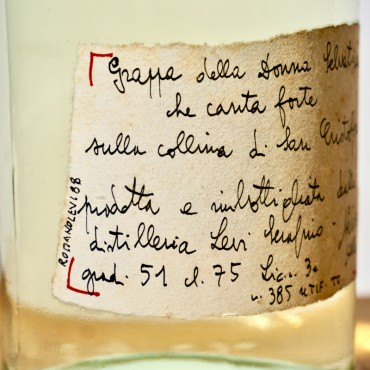 Grappa della Donna Selvat
che canta forte
sulla collina di San Cristof
prodotta e imbottigliata dalla
distilleria Levi Serafino
gradi. 51 cl. 75 Lic. n. 3a
n. 385 UTIF. TO
ROMANOLEVI88